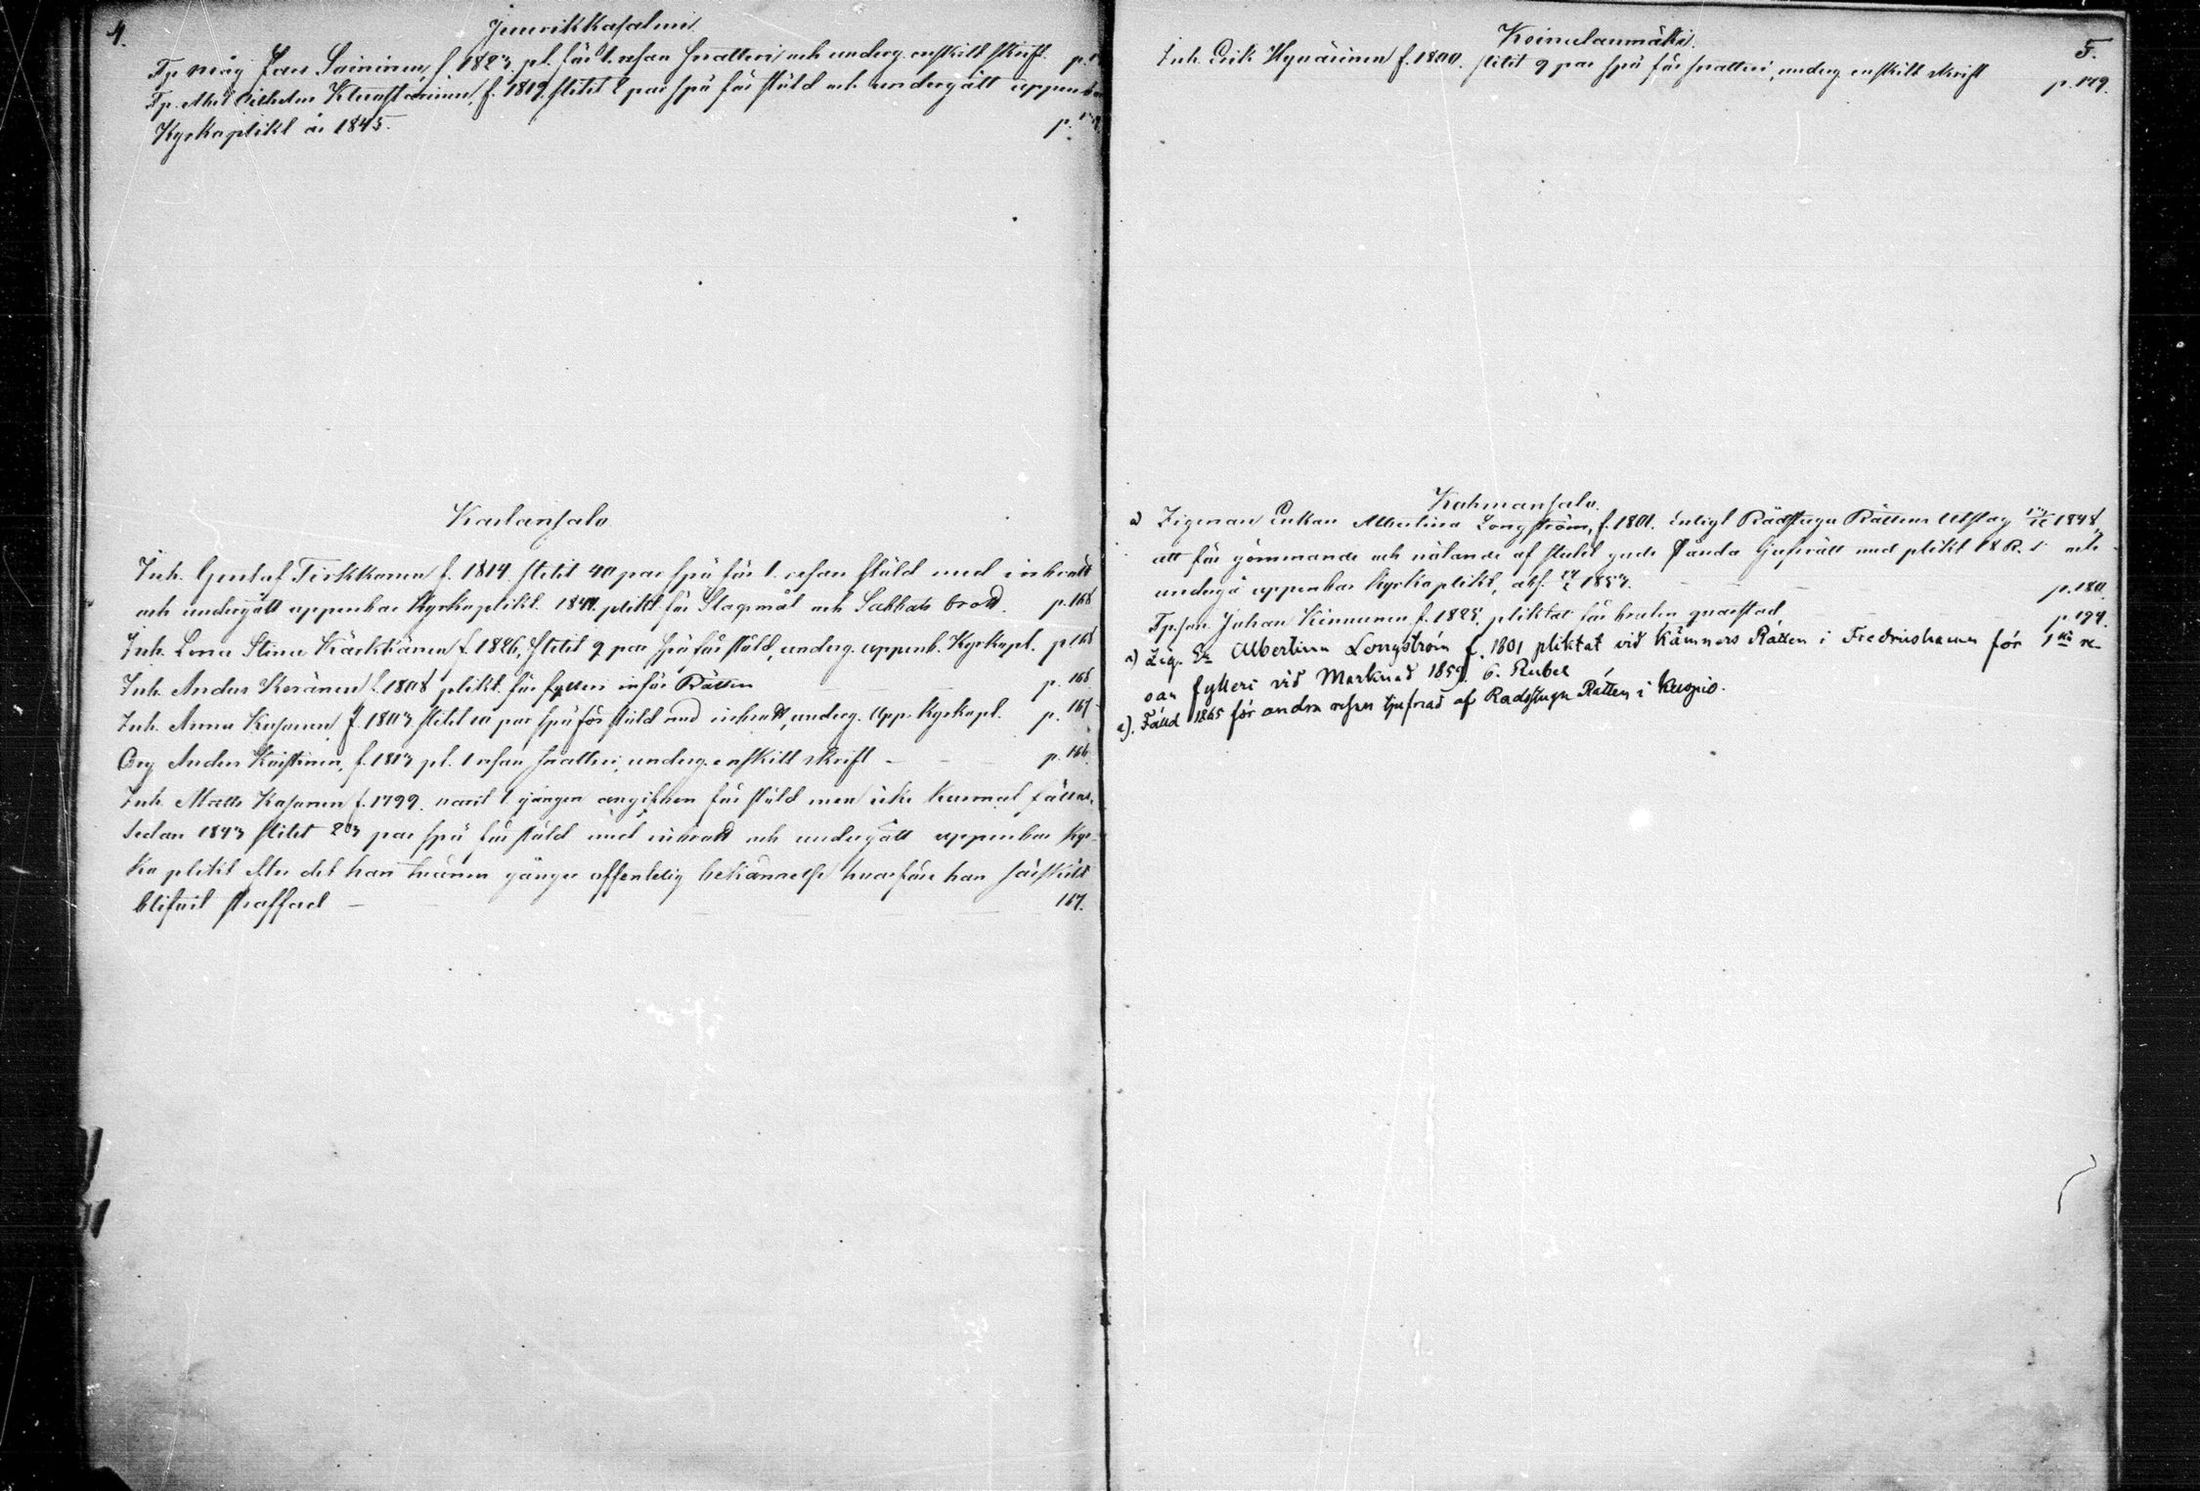 4.
Juurikkasalmi
Tp. måg Lars Saininen, f. 1823. pl. för 1. resan snatteri och underg. enskilt skrift. p.
Tp. Wilhelm f. 1819. slitit 8 par spö för stöld och undergått uppenbar
Kyrkoplikt år 1845. p.
Karlansalo
Inh. Gustaf Tirkkonen f. 1814 slitit 40 par spö för 1. resan stöld med inbrott
och undergått uppenbar Kyrkoplikt. plikt. för Slagsmål och Sabbats brott. p. 168
Inh. Lena Stina Kärkkänen f. 1826, slitit 9 par spö för stöld, underg. uppenb. Kyrkopl. p 168
Inh. Anders Keränen f. 1808 plikt. för fylleri inför Rätten p. 168
Inh. Anna Kasanen f. 1803 slitit 10 par spö för stöld med inbrott, underg. Upp. Kyrkopl. p. 167
Anders f. 1813 pl. 1 resan snatteri, underg. enskilt skrift - p. 166.
Inh. Matts Kasanen f. 1799. varit 1 gången angifven för stöld men icke kunnat fällas.
Sedan 1843 slitit par spö för stöld med inbrott och undergått uppenbar Kyr-
ko plikt efter det han gånger offentelig bekännelse hvarföre han särskildt
blifvit straffad - 167.
5.
Koinulanmäki
Inh. Erik Hynärinen f. 1800. slitit 9 par spö för snatteri, underg. enskilt skrift p. 179.
Kohmansalo.
a) Zigenar Enkan Albertina Longström, f. 1801. Enligt Rådstugu Rättens Utslag 1848,
att för gömmande och nekande af stulit gods plikt 18 R. S. och
undergå uppenbar Kyrkoplikt, abs. 1853. p. 180.
Tp. son Johan Kinnunen f. 1825. pliktat för bruten qvarstad p 194.
a) Zig. E. Albertina Longström f. 1801 pliktat vid Kämners Rätten i Fredrikshamn för 1sta re-
san fylleri vid Marknad 1859. 6. Rubel
a). Fälld 1865 för andra resan tjufnad af Rådstugu Rätten i Kuopio.